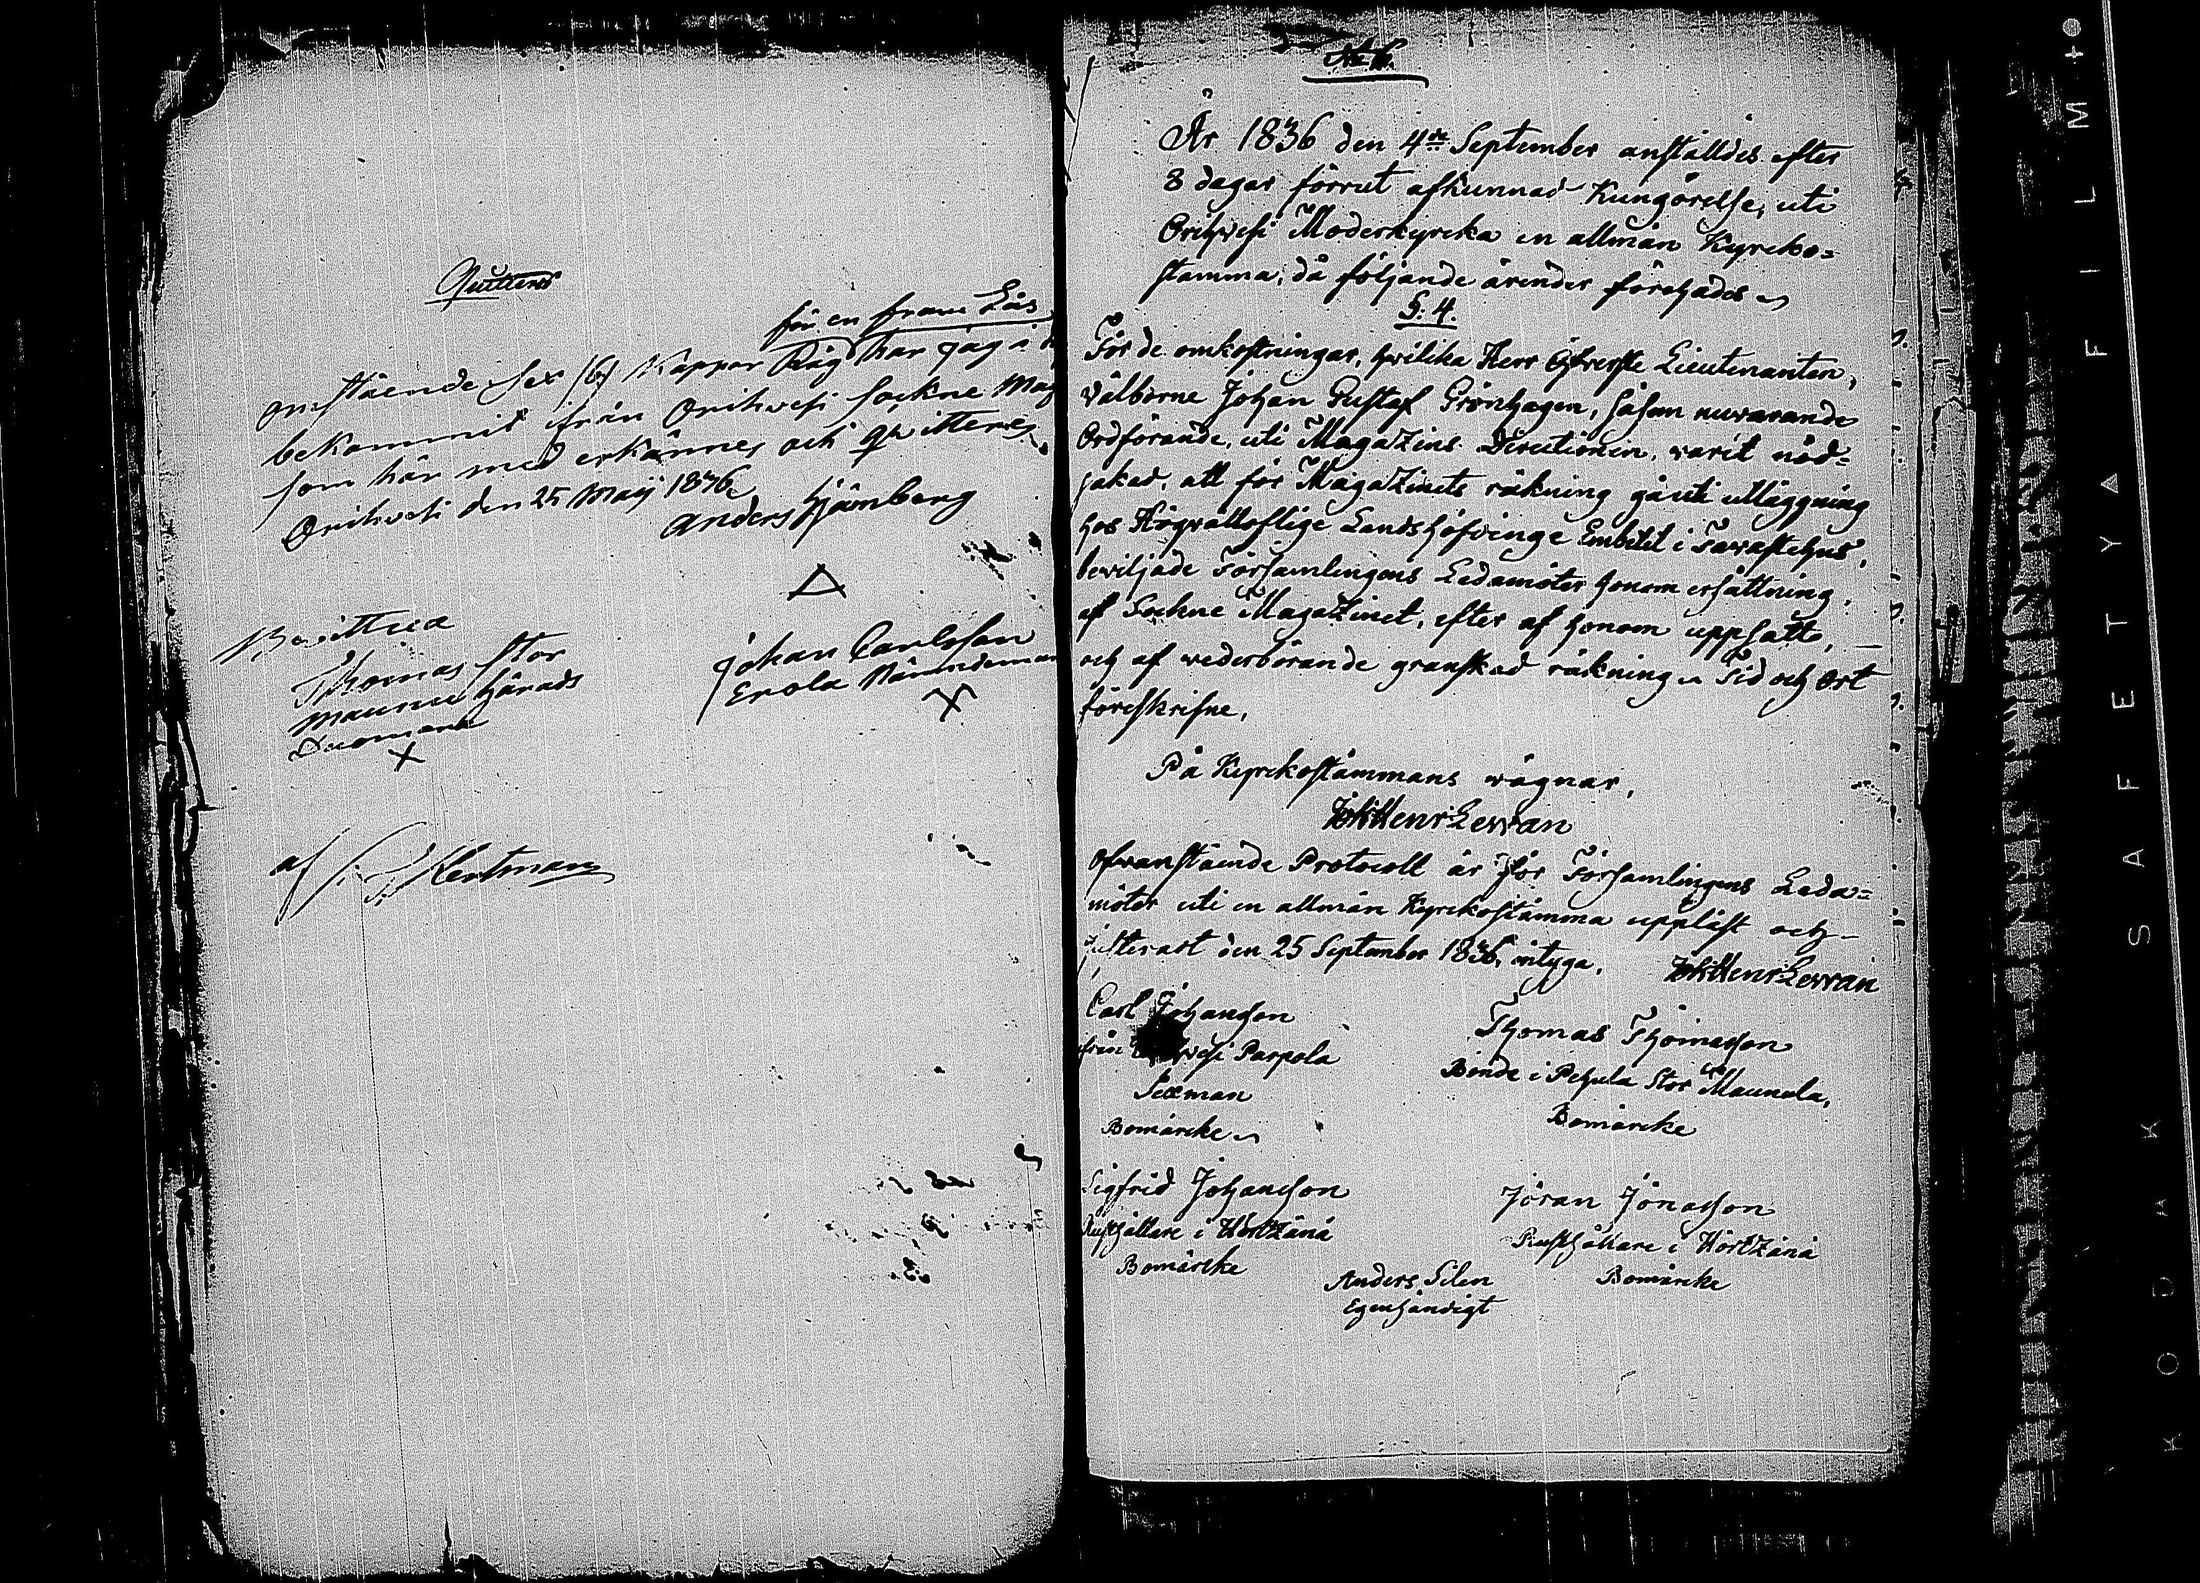 Quittens
för en frani Lås
omstående sex (6) Kappar Råg har jag i
bekommit från Orihvesi sockne Mag
som här med erkännes och qvitteres
Orihvesi den 25 Maij 1836
Anders Hjänberg
Bevittna
Thomas Stor
Maunu Härads
Domare
X
Johan Carlsson
Erola Nämndeman
X
af
År 1836 den 4de September anställdes efter
8 dagar förrut afkunnad Kungörelse, uti
Orihvesi Moderkyrcka en allmän Kyrcko=
stämma, då följande ärender förehades
§. 4.
För de omkostningar, hvilcka Herr Öfverste Lieutenanten,
Välborne Johan Gustaf Grönhagen, såsom nuvarande
Ordförande, uti Magazins Directionen, varit nöd=
sakad, att för Magazinets räkning gå uti utläggning
hos Högvällofliga Landshöfdinge Embetet i Tavastehus,
beviljade Församlingens Ledamöter honom ersättning,
af Sockne Magazinet, efter af honom uppsatt,
och af vederbörande granskad räkning. Tid och Ort
föreskrifne,
På Kyrckostämmans vägnar,
Henr Levvan
Ofvanstående Protocoll är för Församlingens Leda=
möter uti en allmän Kyrckostämma uppläst och
justerat den 25 September 1836, intyga,
Henr Levvan
Carl Johansson
från Parpola
Sexman
Bomärcke
Thomas Thomasson
Bonde i Pehula Stor Maunula,
Bomärcke
Sigfrid Johansson
Rusthållare i Hörtzänä
Bomärcke
Jöran Jönasson
Rusthållare i Hörtzänä
Bomärcke
Anders Silen
Egenhändigt
KODAK SAFETY A FILM